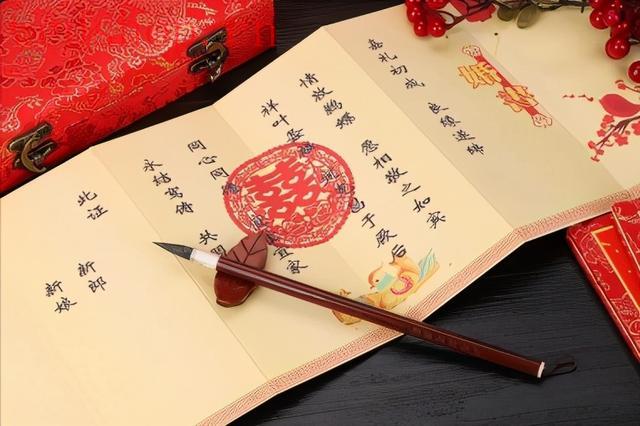 婚书
喜礼初成 良缘遂缔
情敦鹣鲽 愿相敬之如宾
祥叶螽 于厥后
同心同 宜家
永结鸾俦 共盟
此证
新郎
新娘